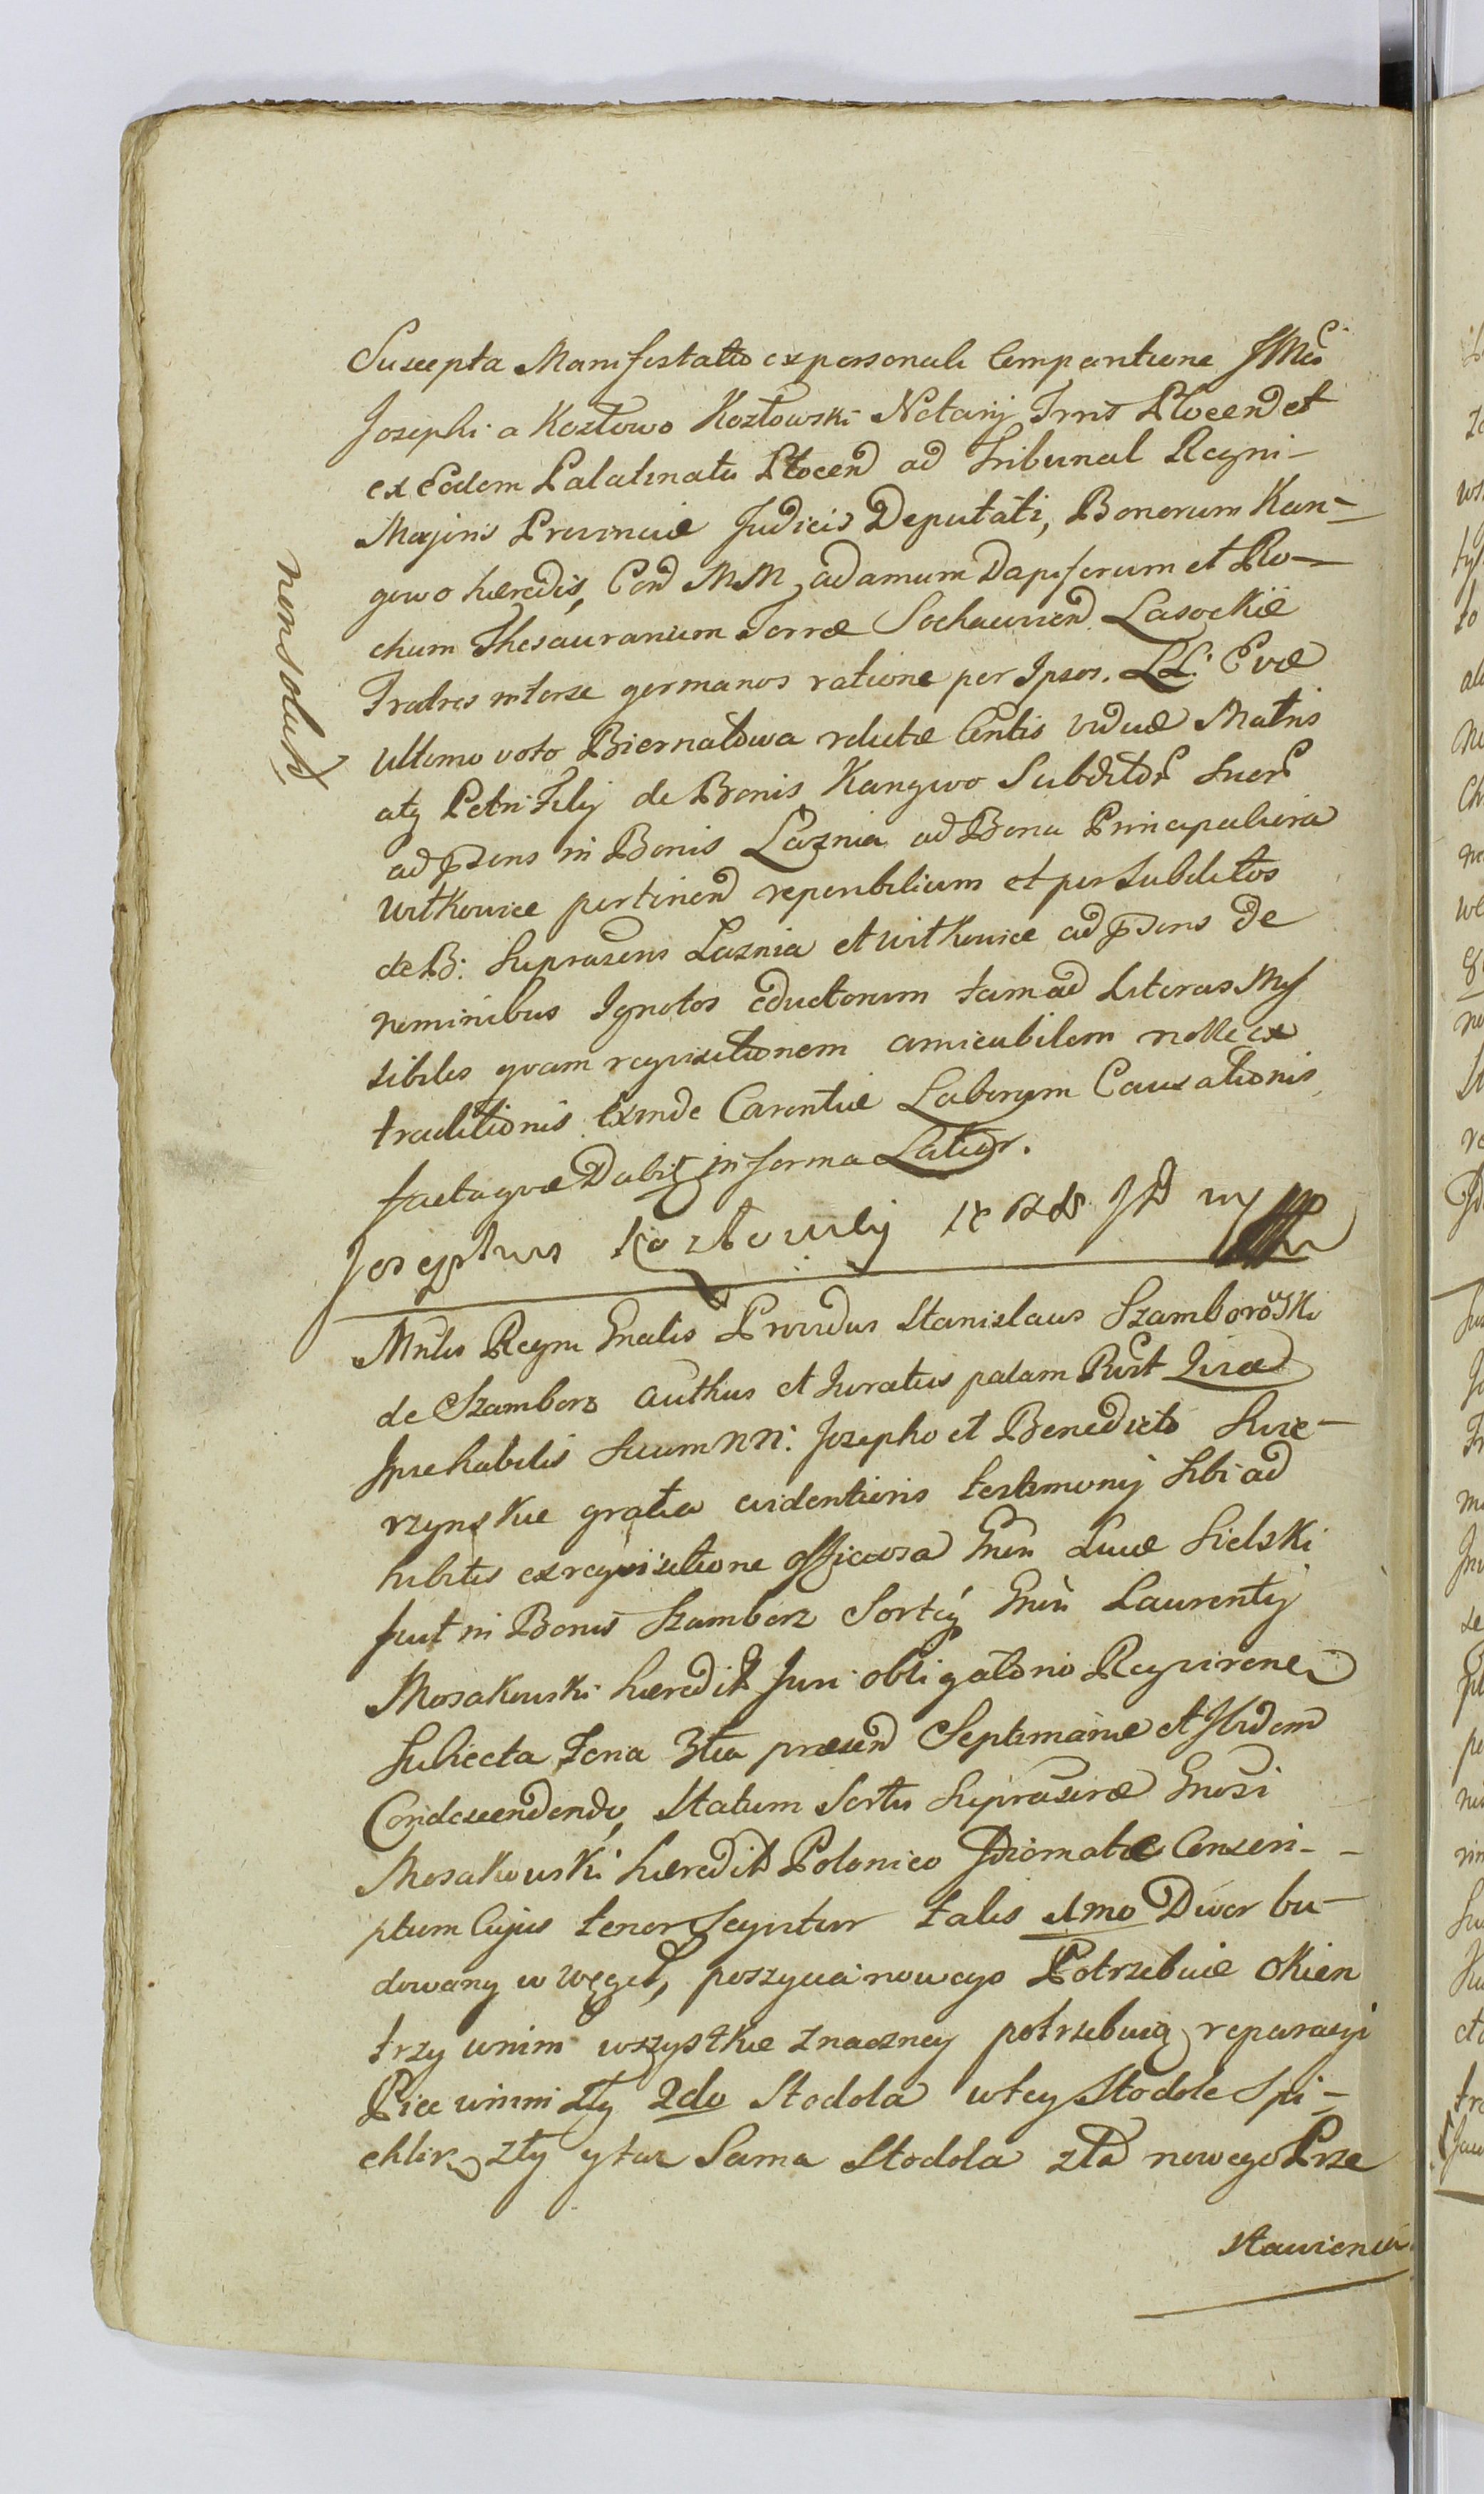 Suscepta Manifestatio ex personali Comparitione JMci
Josephi a Kozłowo Kozłowski Notarij Trris Plocen et
ex Eodem Palatinatu Plocen ad Tribunal Regni
Majoris Provinciæ Judicis Deputati, Bonorum Kan-
gowo hæredis, Con MM Adamum Dapiferum et Ro-
chum Thesaurarium Terræ Sochacvien Lasockie
Fratres inter se germanos ratione per Ipsos. LL. Evæ
ultimo voto Biernatowa relictæ Contis viduæ Matris
atq Petri Filij de Bonis Kangwo Subditor suor
ad præns in Bonis Łaznia ad Bona Principaliora
Witkowice pertinen reperibilium et per Subditos
de B: Suprascris Łaznia et Witkowice ad præns de
nominibus Ignotos eductorum tam ad Literas Mis
sibiles qvam reqvisitionem amicabilem nolle ex
traditionis exinde Carentiæ Laborum Causationis
factaqve Dabit in forma Latior.
Josephus Kozłowsky
non solut
Mnlis Regni Gnalis Providus Stanislaus Szamborowski
de Szamborz authus et Juratus palam Rcvit
Ipse habitis secum NN: Josepho et Benedicto Swie-
rzynskie gratia evidentioris testimonij sibi ad
hibitis ex reqvisitione officiosa Gnsi Lucæ Sielski
fuit in Bonis Szamborz Sortis Gnsi Laurentij
Mosakowski hæredit Juri obligatorio
Subiecta Feria 3tia præsen Septimanæ et Ibidem
Condescendendo, Statum Sortis Suprascræ Gnosi
Mosakowski hæredit Polonico Idiomate Conscri-
ptum Cujus tenor seqvitur talis 1mo Dwor bu-
dowany w węgeł, poszycia nowego Potrzebuie okien
trzy w nim wszystkie znaczney potrzebuią reparacyi
Piec w nim zły 2do Stodoła w tey Stodole Spi-
chlirz zły y taż Sama Stodoła zła nowego Prze
stawienia